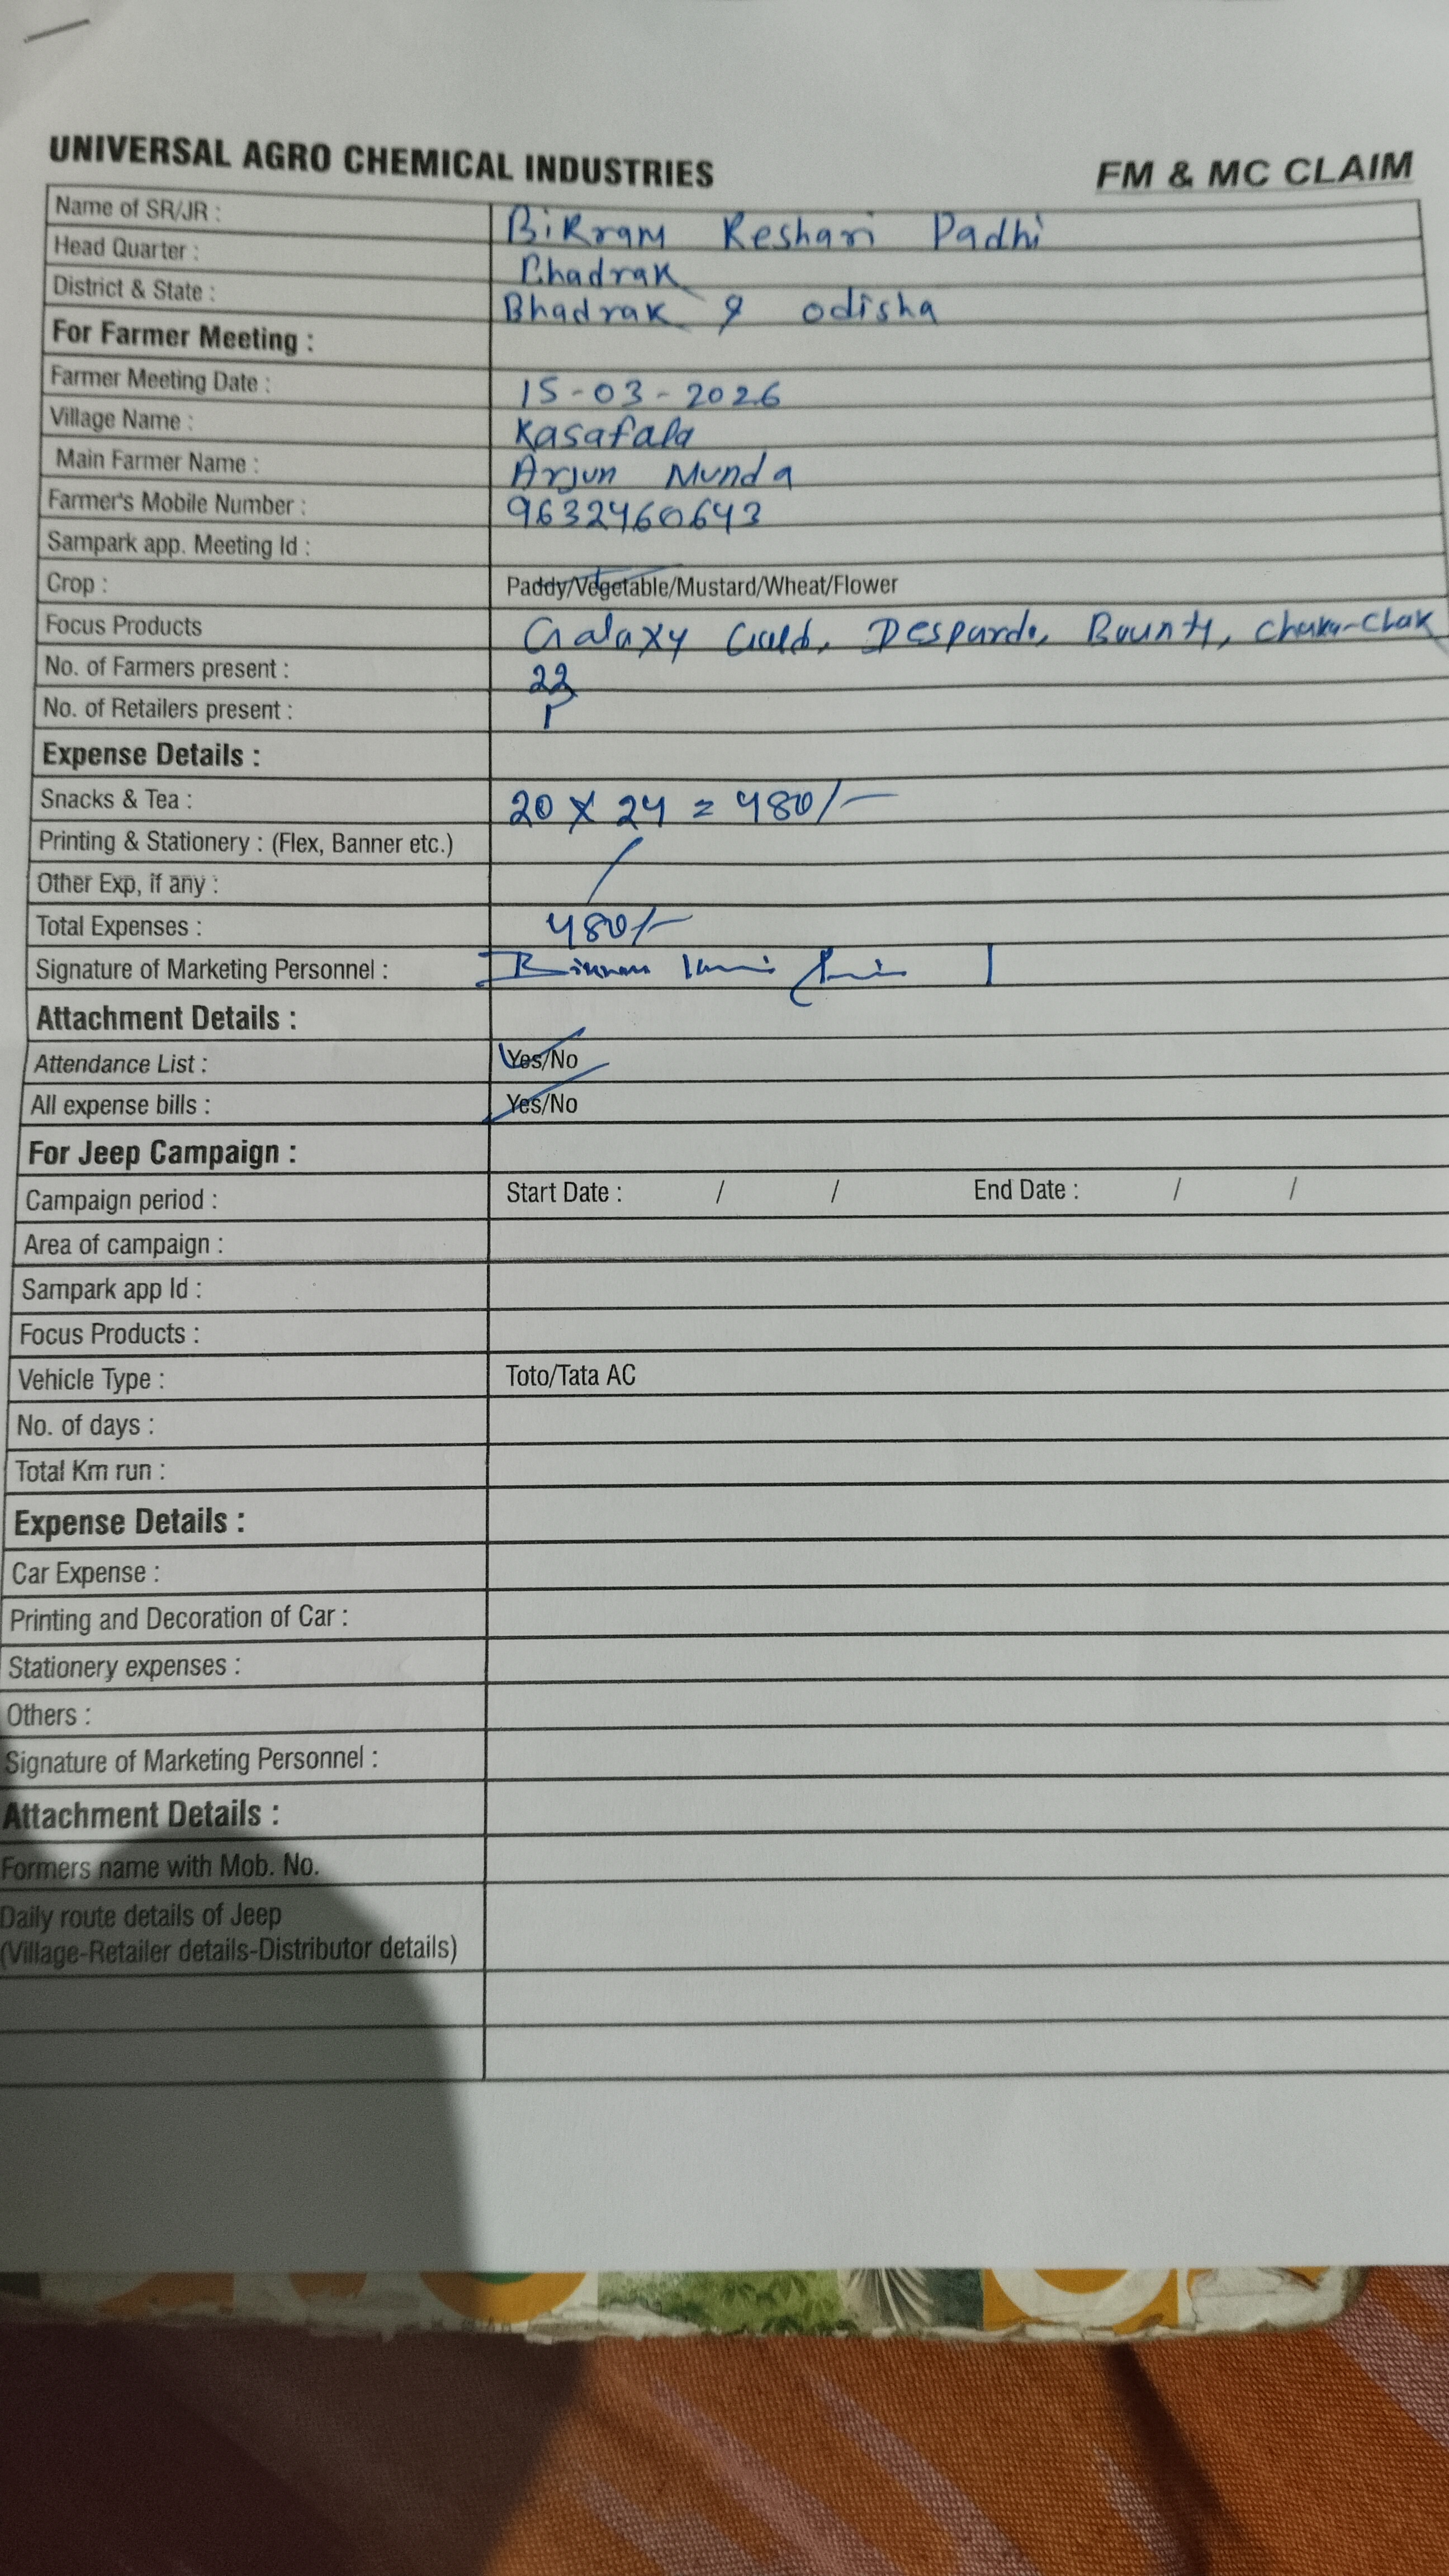 UNIVERSAL AGRO CHEMICAL INDUSTRIES FM & MC CLAIM
Name of SR/JR : BiKram Keshari Padhi
Head Quarter : Bhadrak
District & State : Bhadrak & odisha
For Farmer Meeting :
Farmer Meeting Date : 15-03-2026
Village Name : Kasafala
Main Farmer Name : Arjun Munda
Farmer's Mobile Number : 9632460643
Sampark app. Meeting Id :
Crop : Paddy/Vegetable/Mustard/Wheat/Flower
Focus Products Galaxy Gold, Desparado, Bounty, Chaka-Chak
No. of Farmers present : 22
No. of Retailers present : 1
Expense Details :
Snacks & Tea : 20 X 24 = 480/-
Printing & Stationery : (Flex, Banner etc.)
Other Exp, if any :
Total Expenses : 480/-
Signature of Marketing Personnel :
Attachment Details :
Attendance List : Yes/No
All expense bills : Yes/No
For Jeep Campaign :
Campaign period : Start Date : / / End Date : / /
Area of campaign :
Sampark app Id :
Focus Products :
Vehicle Type : Toto/Tata AC
No. of days :
Total Km run :
Expense Details :
Car Expense :
Printing and Decoration of Car :
Stationery expenses :
Others :
Signature of Marketing Personnel :
Attachment Details :
Formers name with Mob. No.
Daily route details of Jeep
(Village-Retailer details-Distributor details)